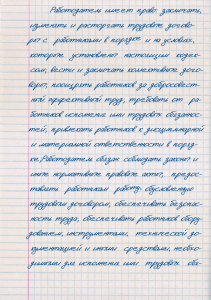 Работодатель имеет право заключать,
изменять и расторгать трудовые догово-
ры с работниками в порядке и на условиях,
которые установлены настоящим кодек-
сом, вести и заключать коллективные дого-
воры, поощрять работников за добросовест-
ный эффективный труд, требовать от ра-
ботников исполнения ими трудовых обязаннос-
тей, привлекать работников к дисциплинарной
и материальной ответственности в поряд-
ке. Работодатель обязан соблюдать законы и
иные нормативные правовые акты, предос-
тавлять работникам работу, обусловленную
трудовым договором, обеспечивать безопас-
ность труда, обеспечивать работников обору-
дованием, инструментами, технической до-
кументацией и иными средствами, необхо-
димыми для исполнения ими трудовых обя-